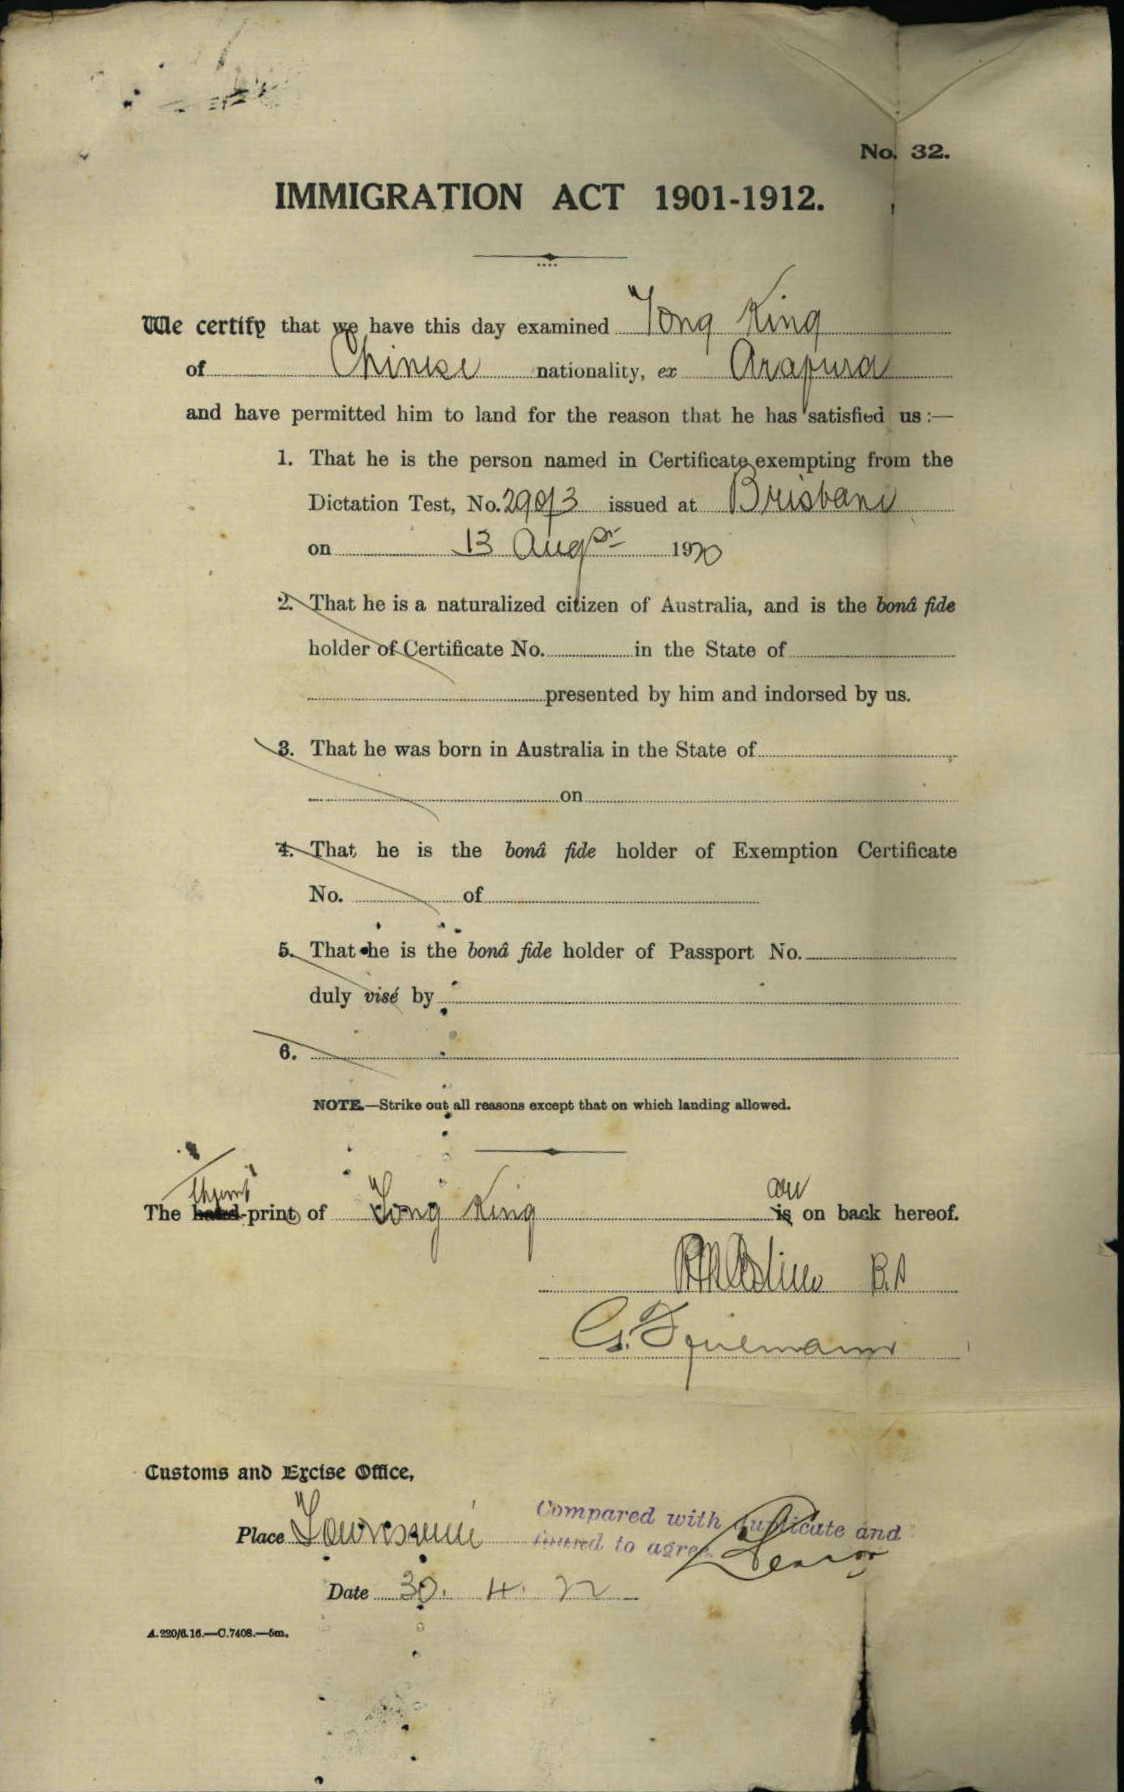 No. 32.
IMMIGRATION ACT 1901-1912.
We certify that we have this day examined Tong King
of Chinese nationality, ex Arafura
and have permitted him to land for the reason that he has satisfied us:—
1. That he is the person named in Certificate exempting from the
Dictation Test, No. issued at Brisbane
on 13 Augst 1920
2. That he is a naturalized citizen of Australia, and is the bonâ fide
holder of Certificate No. in the State of
presented by him and indorsed by us.
3. That he was born in Australia in the State of
on
4. That he is the bonâ fide holder of Exemption Certificate
No. of
5. That he is the bonâ fide holder of Passport No.
duly visé by
6.
NOTE.—Strike out all reasons except that on which landing allowed.
The hand-print of Tong King is are on back hereof.
Customs and Excise Office,
Place Townsville
Compared with duplicate and
found to agree.
Date 30. 4. 22
A.220/6.16.—C.7408.—5m.